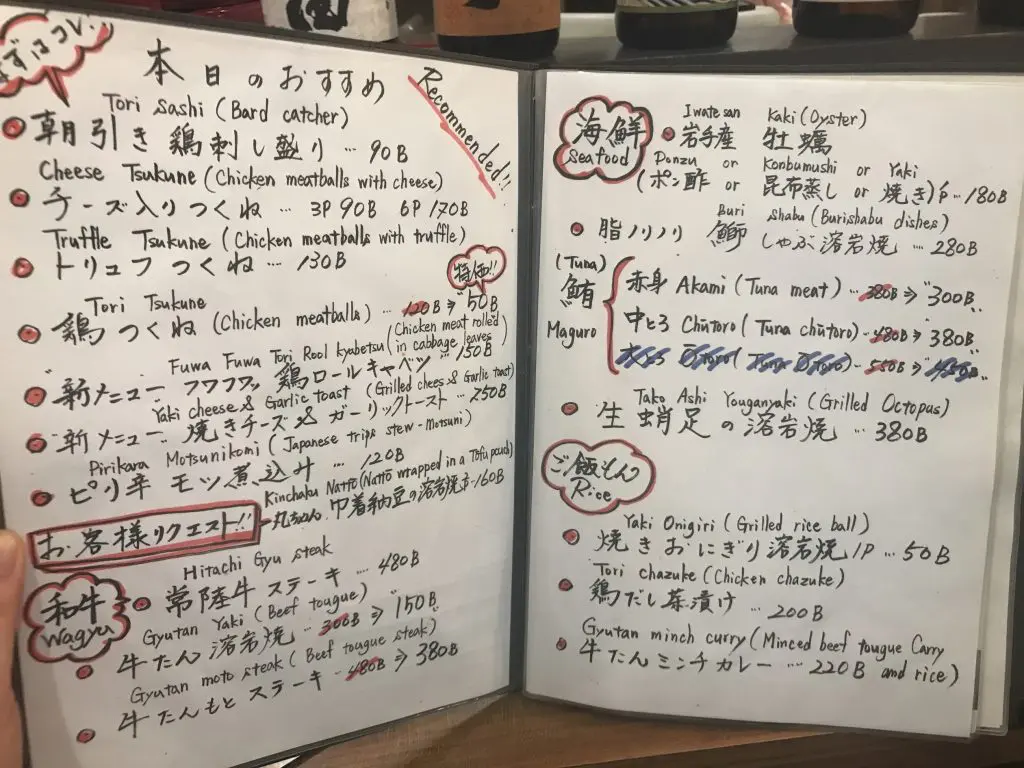 まずはコレ!
本日のおすすめ
Recommended!!
Tori sashi (Bard catcher)
朝引き鶏刺し盛り … 90B
Cheese Tsukune (Chicken meatballs with cheese)
チーズ入りつくね … 3P 90B 6P 170B
Truffle Tsukune (Chicken meatballs with truffle)
トリュフつくね … 130B
特価!!
Tori Tsukune
鶏つくね (Chicken meatballs) … 120B ⇒ "50B"
Fuwa Fuwa Tori Rool kyabetsu (Chicken meat rolled in cabbage leaves)
新メニュー フワフワッ 鶏ロールキャベツ … 150B
Yaki cheese & Garlic toast (Grilled chees & Garlic toast)
新メニュー 焼きチーズ & ガーリックトースト … 250B
Pirikara Motsunikomi (Japanese trips stew-Motsuni)
ピリ辛 モツ煮込み … 120B
Kinchaku Natto (Natto wrapped in a Tofu pouch)
お客様リクエスト!! 巾着納豆の溶岩焼き-160B
Hitachi Gyu steak
和牛 Wagyu
常陸牛 ステーキ … 480B
Gyutan Yaki (Beef tougue)
牛たん 溶岩焼 … 300B ⇒ "150B"
Gyutan moto steak (Beef tougue steak)
牛たんもと ステーキ - 480B ⇒ 380B
海鮮 Seafood
Iwate san Kaki (Oyster)
岩手産 牡蠣
Ponzu or Konbumushi or Yaki
(ポン酢 or 昆布蒸し or 焼き) 1P … 180B
Buri shabu (Burishabu dishes)
脂ノリノリ 鰤しゃぶ溶岩焼 … 280B
(Tuna)
鮪
Maguro
赤身 Akami (Tuna meat) … 380B ⇒ "300B"
中とろ Chūtoro (Tuna chūtoro) - 480B ⇒ 380B
Tako Ashi Youganyaki (Grilled Octopus)
生蛸足の溶岩焼 … 380B
ご飯もの Rice
Yaki Onigiri (Grilled rice ball)
焼きおにぎり溶岩焼 1P … 50B
Tori chazuke (Chicken chazuke)
鶏だし茶漬け … 200B
Gyutan minch curry (Minced beef tougue Carry and rice)
牛たんミンチカレー … 220B